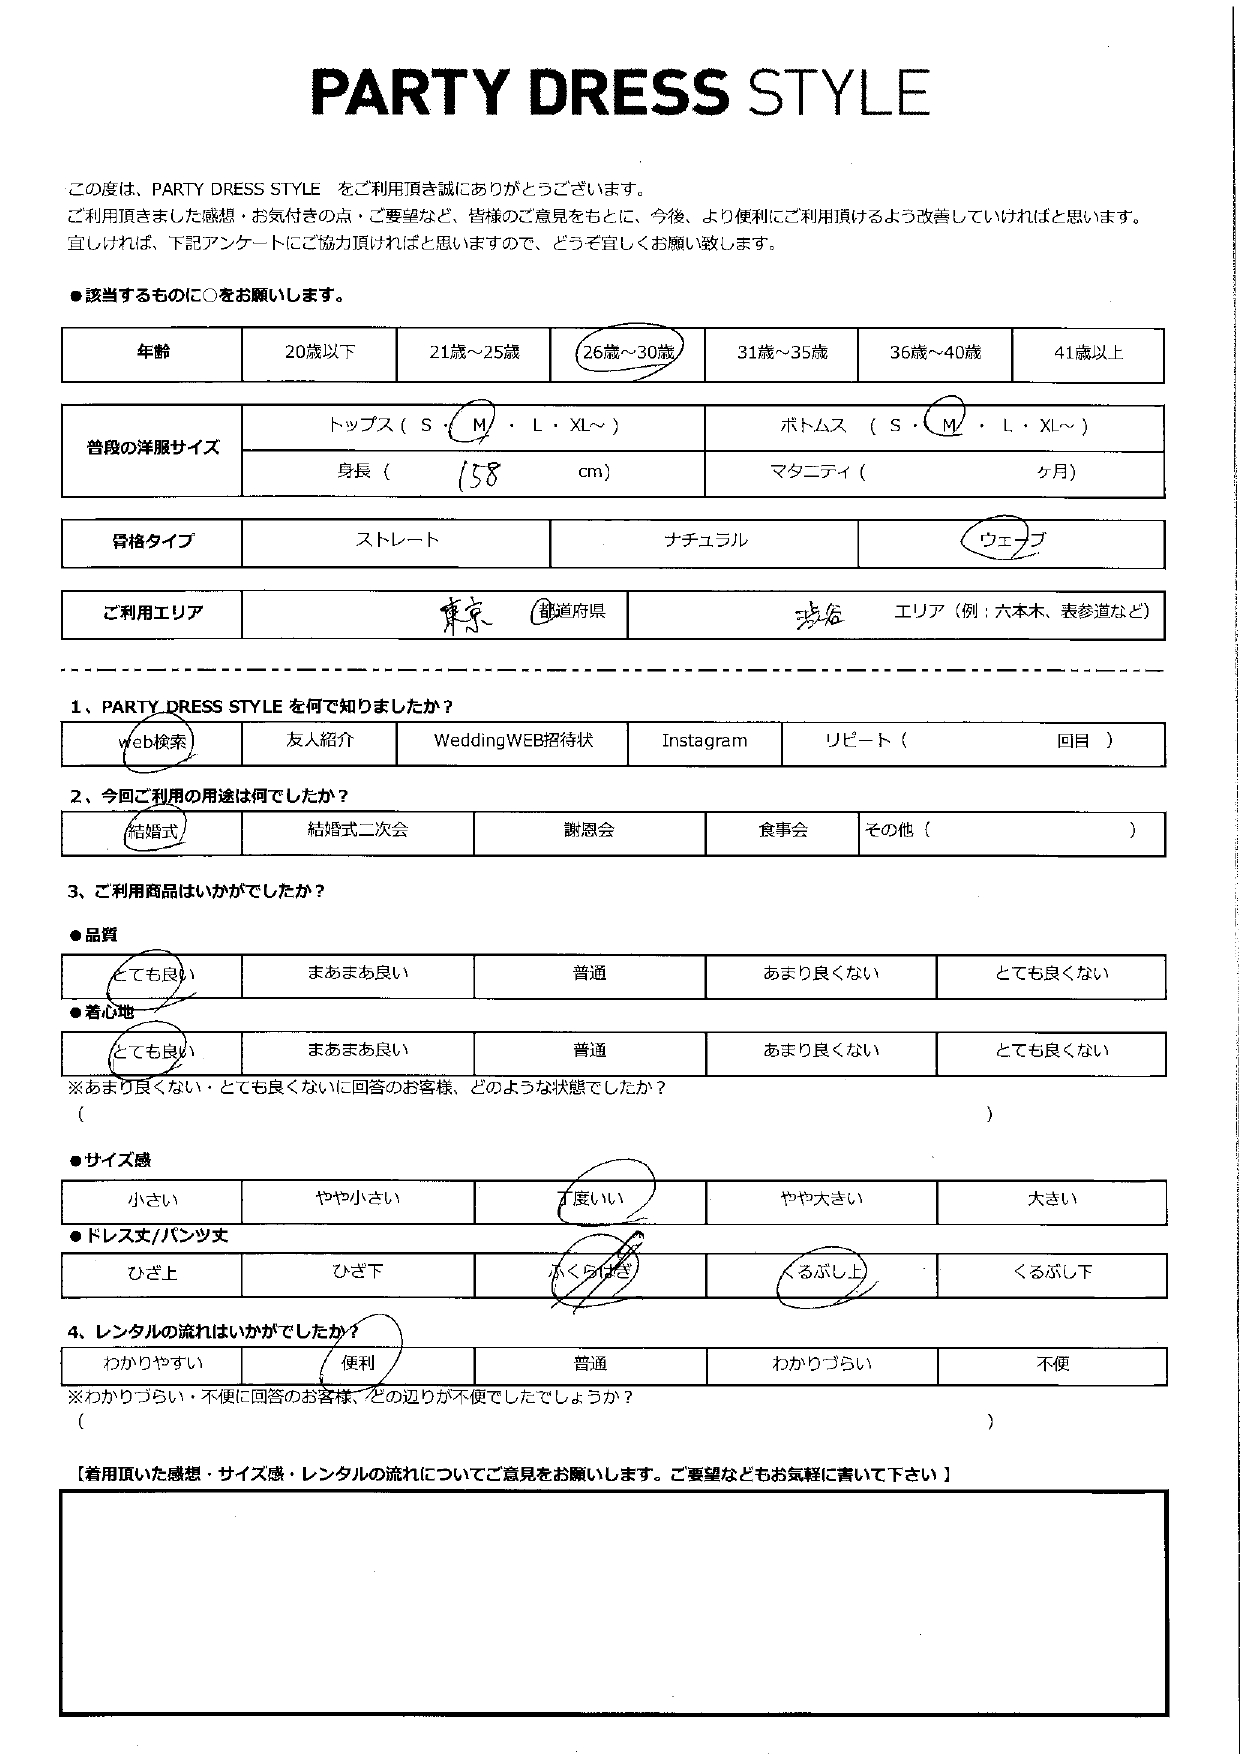 PARTY DRESS STYLE
この度は、PARTY DRESS STYLE　をご利用頂き誠にありがとうございます。
ご利用頂きました感想・お気付きの点・ご要望など、皆様のご意見をもとに、今後、より便利にご利用頂けるよう改善していければと思います。
宜しければ、下記アンケートにご協力頂ければと思いますので、どうぞ宜しくお願い致します。
●該当するものに○をお願いします。
年齢 20歳以下 21歳～25歳 26歳～30歳 31歳～35歳 36歳～40歳 41歳以上
普段の洋服サイズ
トップス ( S ・ M ・ L ・ XL～ ) ボトムス ( S ・ M ・ L ・ XL～ )
身長 ( 158 cm) マタニティ ( ヶ月)
骨格タイプ ストレート ナチュラル ウェーブ
ご利用エリア 東京 都道府県 渋谷 エリア（例：六本木、表参道など）
1、PARTY DRESS STYLE を何で知りましたか？
web検索 友人紹介 WeddingWEB招待状 Instagram リピート（ 回目 ）
2、今回ご利用の用途は何でしたか？
結婚式 結婚式二次会 謝恩会 食事会 その他（ ）
3、ご利用商品はいかがでしたか？
●品質
とても良い まあまあ良い 普通 あまり良くない とても良くない
●着心地
とても良い まあまあ良い 普通 あまり良くない とても良くない
※あまり良くない・とても良くないに回答のお客様、どのような状態でしたか？
（ ）
●サイズ感
小さい やや小さい 丁度いい やや大きい 大きい
●ドレス丈/パンツ丈
ひざ上 ひざ下 ふくらはぎ くるぶし上 くるぶし下
4、レンタルの流れはいかがでしたか？
わかりやすい 便利 普通 わかりづらい 不便
※わかりづらい・不便に回答のお客様、どの辺りが不便でしたでしょうか？
（ ）
【着用頂いた感想・サイズ感・レンタルの流れについてご意見をお願いします。ご要望などもお気軽に書いて下さい 】